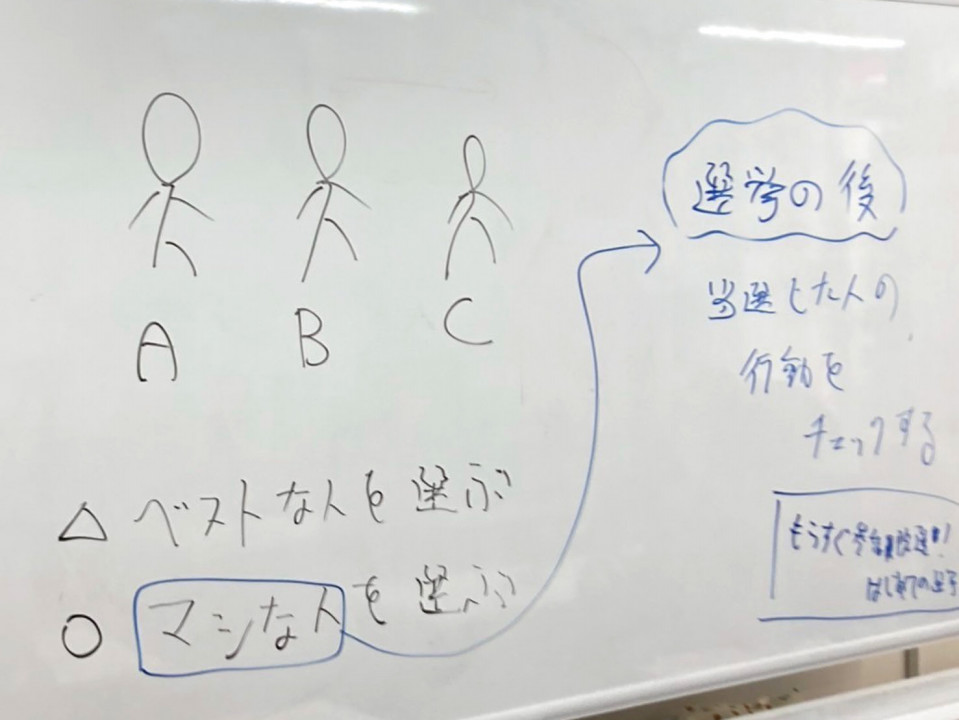 A B C
△ ベストな人を選ぶ
○ マシな人を選ぶ
選挙の後
当選した人の
行動を
チェックする
もうすぐ
はじめての